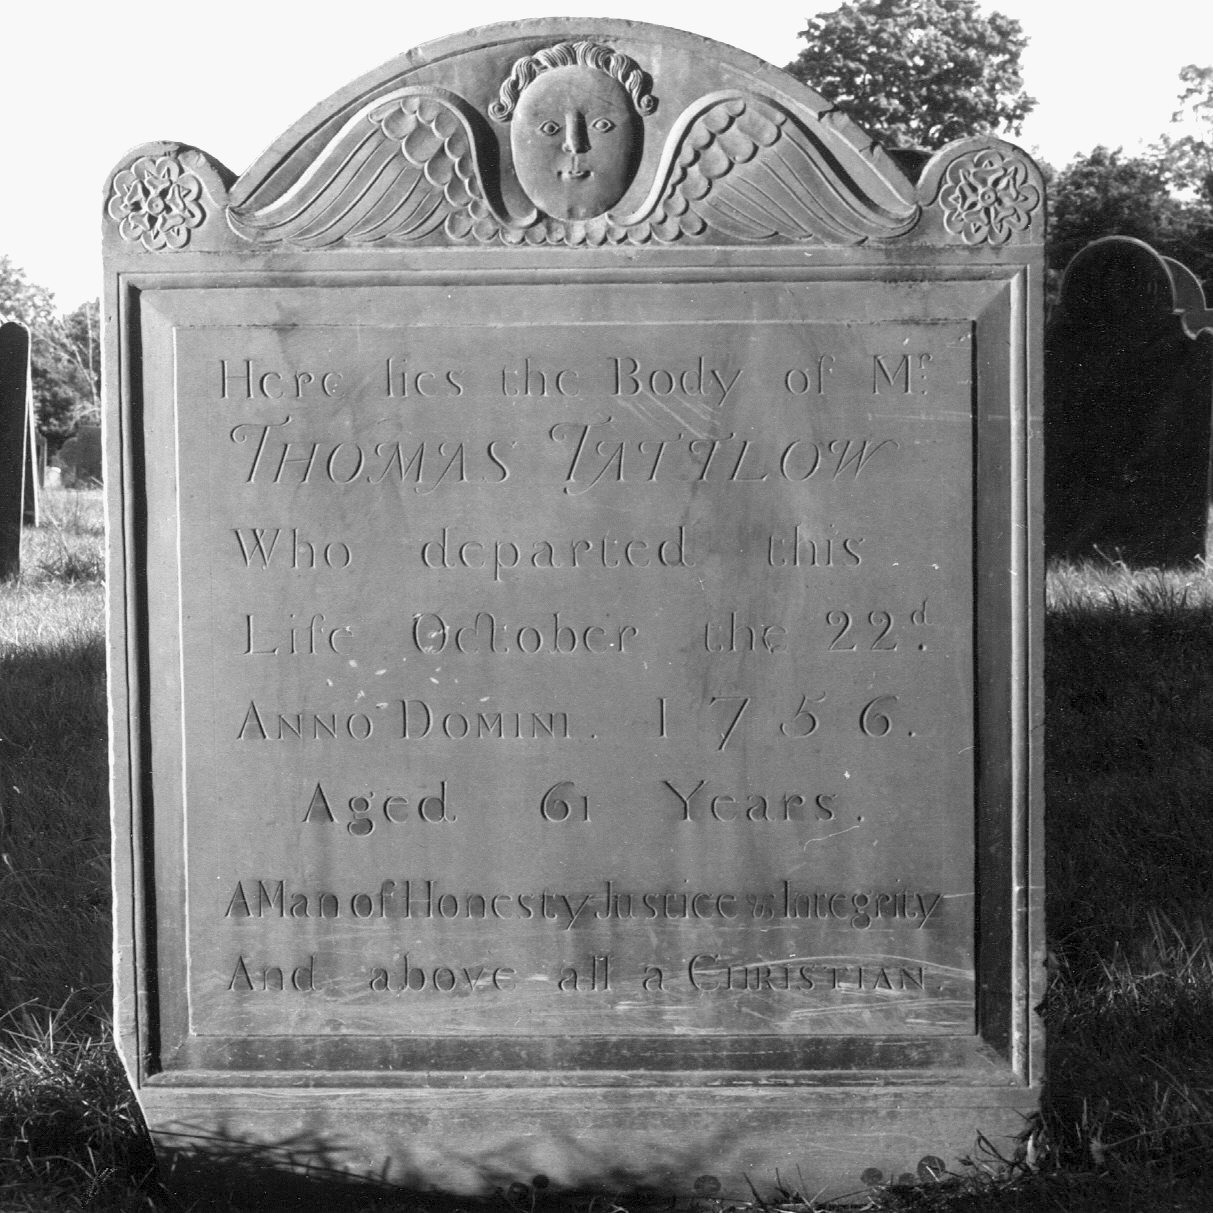 Here lies the Body of Mr.
THOMAS TATTLOW
Who departed this
Life October the 22d.
ANNO DOMINI. 1756.
Aged 61 Years.
A Man of Honesty Justice & Integrity
And above all a CHRISTIAN.